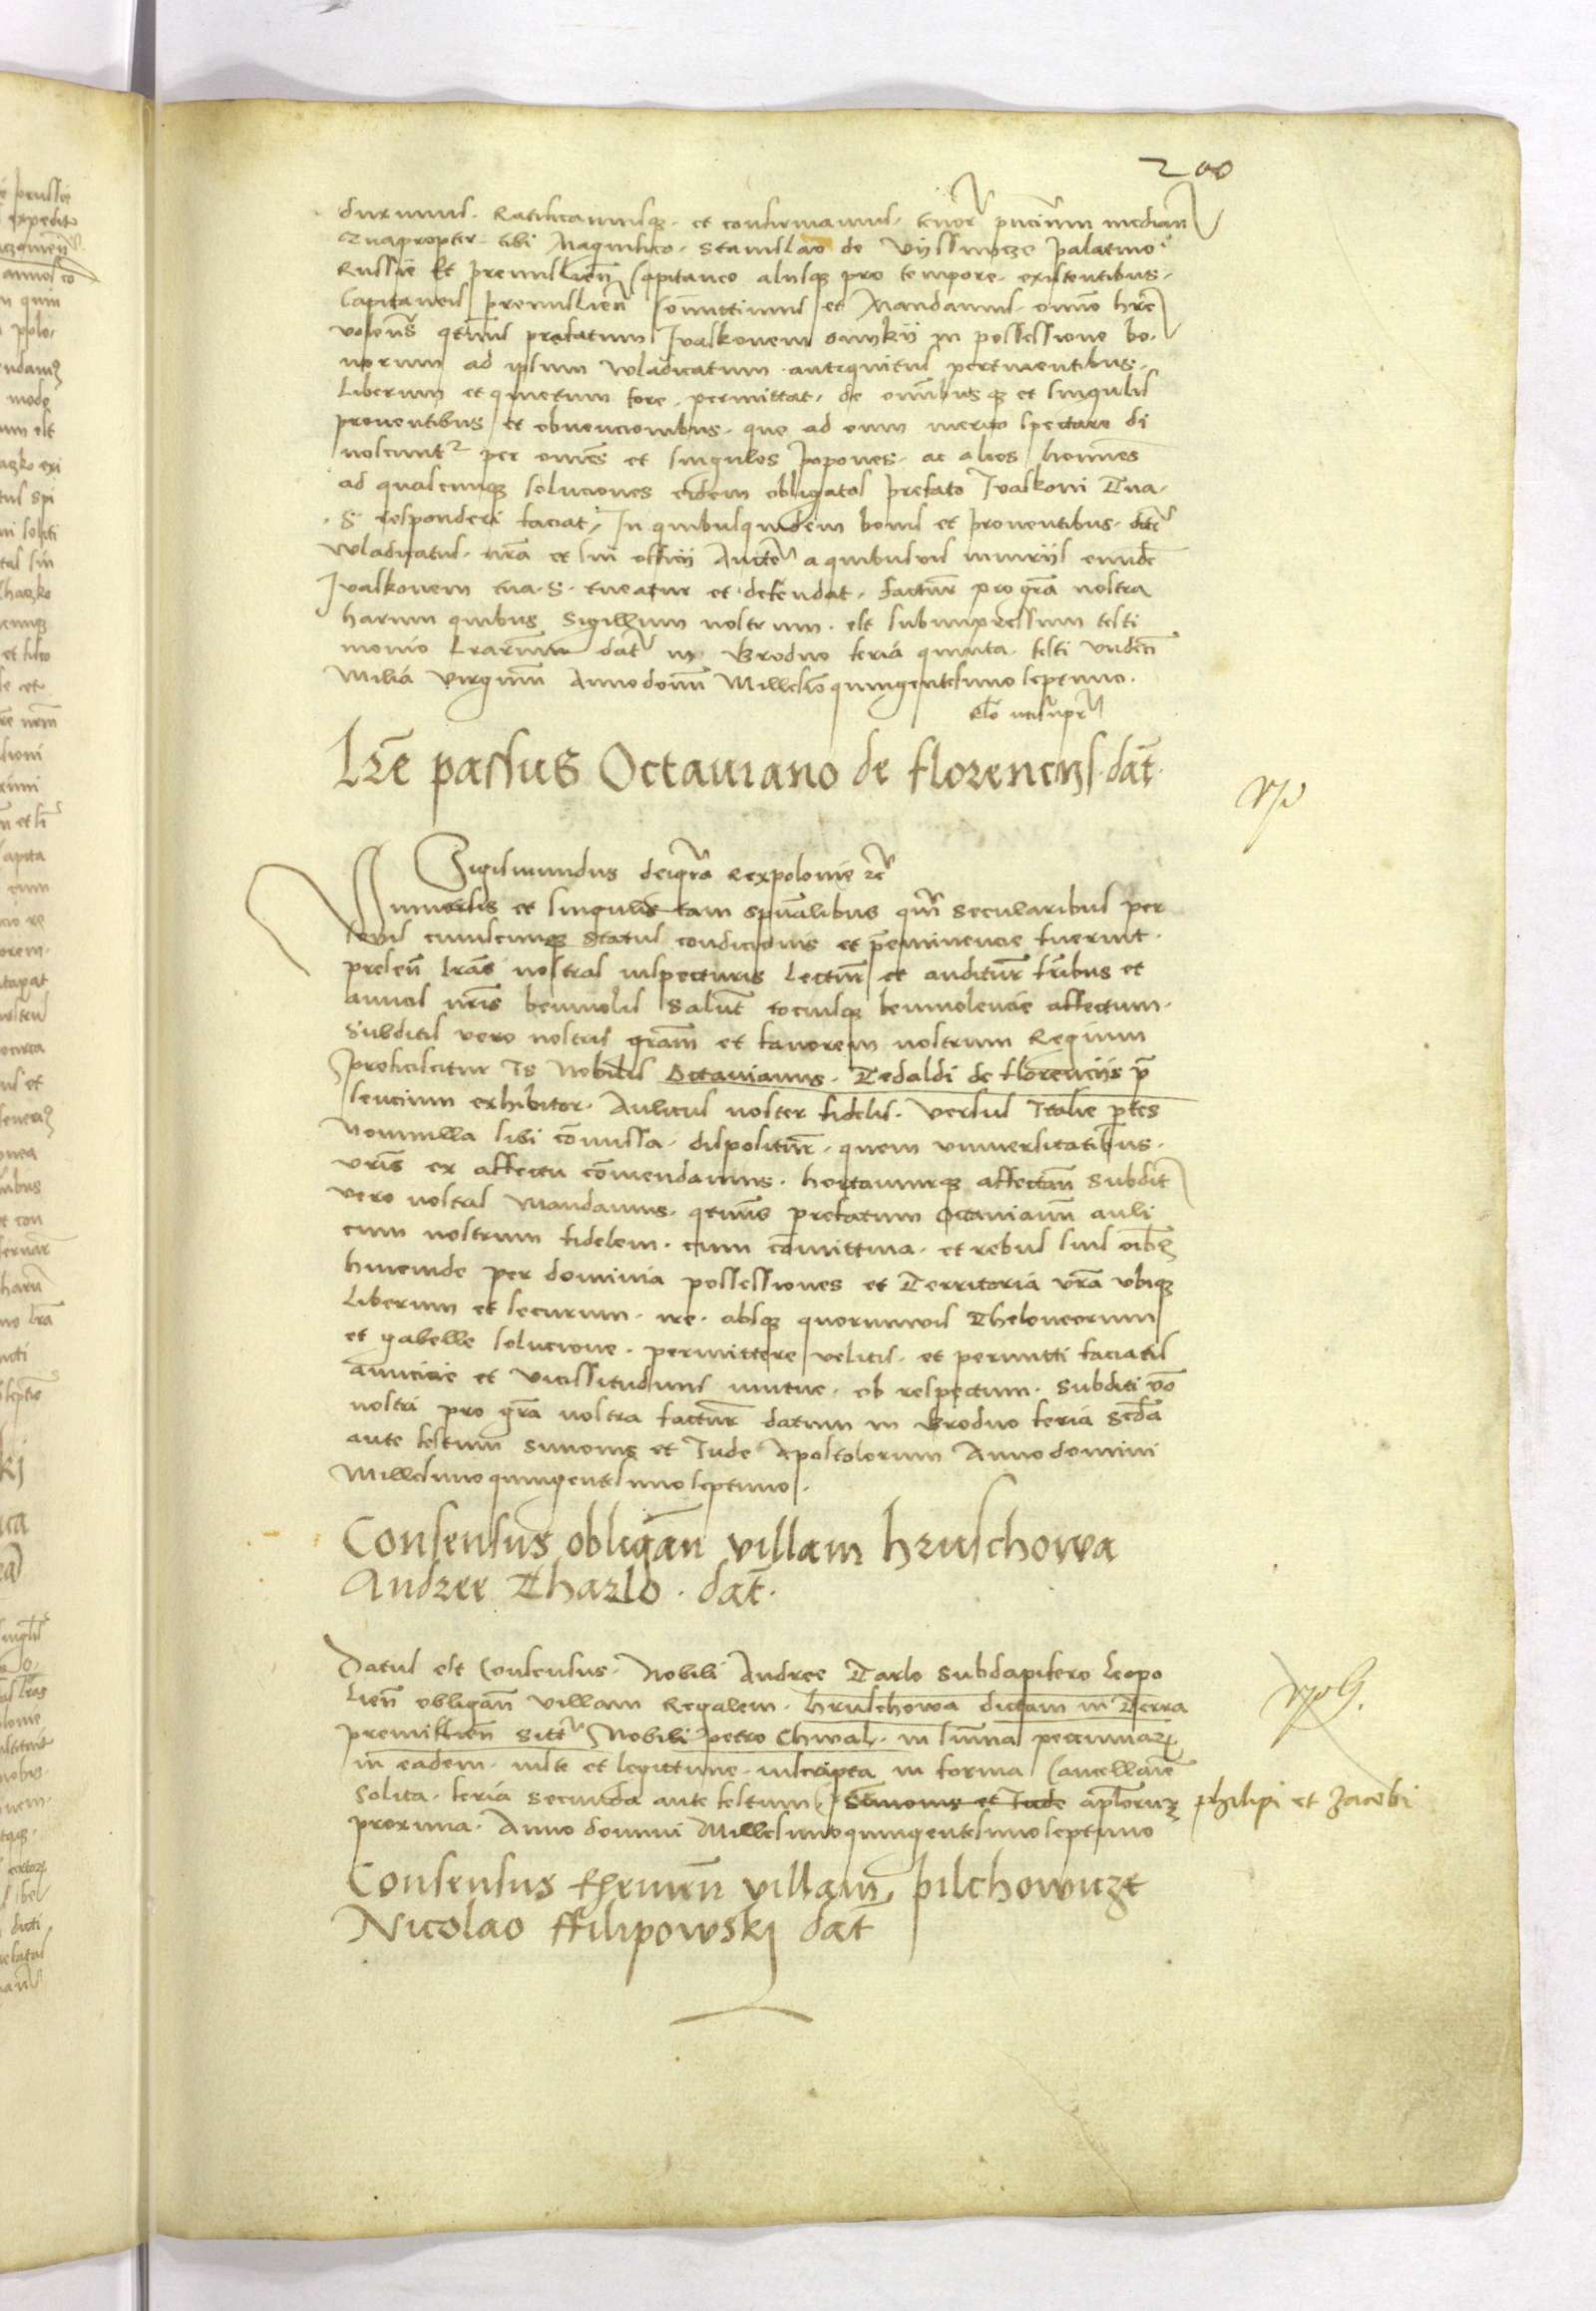 200
durimus. Ratificamusq̃. et confirmamus. tenorẽ pñcium median̄
Quapropter tibi Magnifico. Stanislao de Vyssnycze palatino
Russie Et premislien̄ Capitaneo aliisq̃ pro tempore. existentibus.
Capitaneis premislien̄ Com̄ittimus et Mandamus. omnino hr̃e
volens̄ q̃tinus prefatum Ivaskonem in possessione bo.
norum ad ipsum wladicatum antiquitus pertinentibus.
Liberum et quietum fore. permittat. de om̄ibusq̃ et singulis
proventibus et obvencionibus. que ad eum merito spectare di
noscunt̃ per om̄es et singulos popones. ac alios homines
ad quascumq̃ soluciones eidem obligatos prefato Ivaskoni Tua.
S. responderi faciat. In quibusquidem bonis et proventibus. dict̃
wladicatus. nr̃a et sui officij Auct̃e a quibusvis iniuriis eundẽ
Ivaskonem tua. S. tueatur et defendat. facturr̃ pro gr̃a nostra
harum quibus Sigillum nostrum. est subimpressum testi
monio Lr̃arum dat̃ in Grodno feria quinta. festi undecĩ
Milia virginũ Anno domĩ Millesĩo quingentesimo septimo.
Lr̃e passus Octaviano de florencijs. dat̃.
Sigismundus dei gr̃a Rex polonie ec̃
Universis et singulis tam sp̃ualibus quã secularibus per
sonis cuiuscumq̃ Status condicionis et p̃eminencie fuerint.
presen̄ lr̃as nostras inspecturis Lectur̃ et auditur̃ fr̃ibus et
amicis nr̃is benivolis Salut̃ tociusq̃ benivolencie affectum.
Subditis vero nostris gr̃am et favorem nostrum Regium
proficiscitur Is Nobilis Octavianus. Tedaldi de florencijs p̃
sencium exhibitor. Aulicus noster fidelis. versus Italie p̃tes
Nonnulla sibi cõmissa. dispositur̃. quem universitatibus.
vr̃is ex affectu cõmendamus. hortamurq̃ affectan̄ subdit̃
vero nostris Mandamus. q̃tinus prefatum Octavianũ auli
cum nostrum fidelem. cum cõmittiva. et rebus suis oĩbus
hincinde per dominia possessiones et Territoria vr̃a ubiq̃
Liberum et securum. ire. absq̃ quorumvis Theloneorum
et gabelle solucione. permittere velitis. et permitti faciatis
amicicie et vicissitudinis mutue. ob respectum. Subditi ṽo
nostri pro gr̃a nostra factur̃ datum in Grodno feria Scd̃a
ante festum Simonis et Jude Apostolorum Anno domini
Millesimo quingentesimo septimo.
Consensus obligan̄ villam hruschowa
Andree Tharlo. dat̃.
Datus est Consensus. Nobili Andree Tarlo Subdapifero Leopo
lien̄ obligan̄ villam Regalem. hruschowa dictam in Terra
premislien̄ Sitt̃ Nobili petro Chwal. in sum̄a pecuniarũ
in eadem. iuste et legittime. inscripta in forma Cancellarie
Solita. feria secunda ante festum Simonis et Jude ap̃lorum philipi et Jacobi
proxima. Anno domini Millesimo quingentesimo septimo
Consensus villam pilchowicze
Nicolao ffilipowskj dat̃